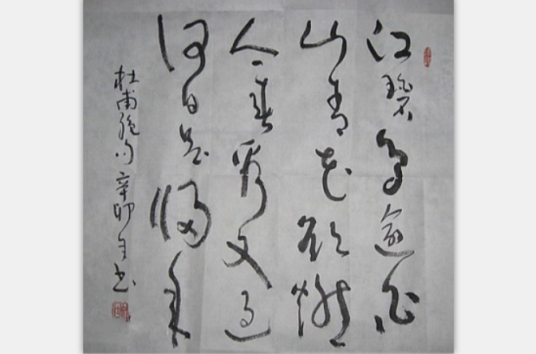 江碧鳥逾白
山青花欲燃
今春看又過
何日是歸年
杜甫絕句 辛卯年書